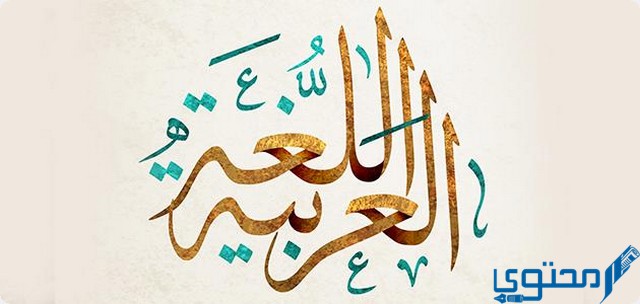 اللغة
العربية
محتوى